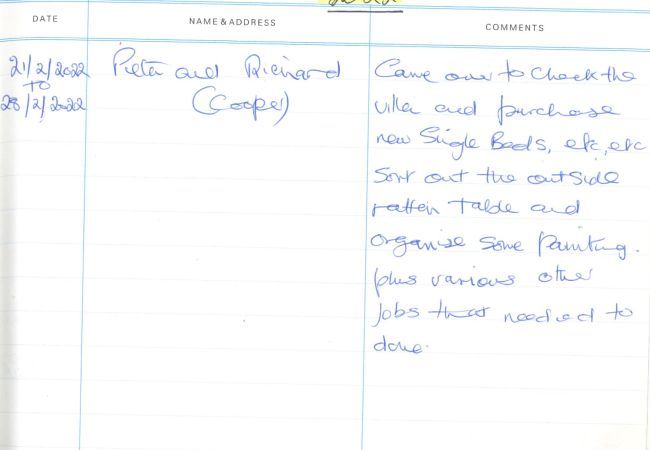 DATE
NAME & ADDRESS
COMMENTS
21/2/2022
TO
28/2/2022
Pieta and Richard
(Cooper)
Came over to check the
villa and purchase
new Single Beds, etc, etc
Sort out the outside
ratten Table and
organise some painting.
plus various other
jobs that needed to
done.